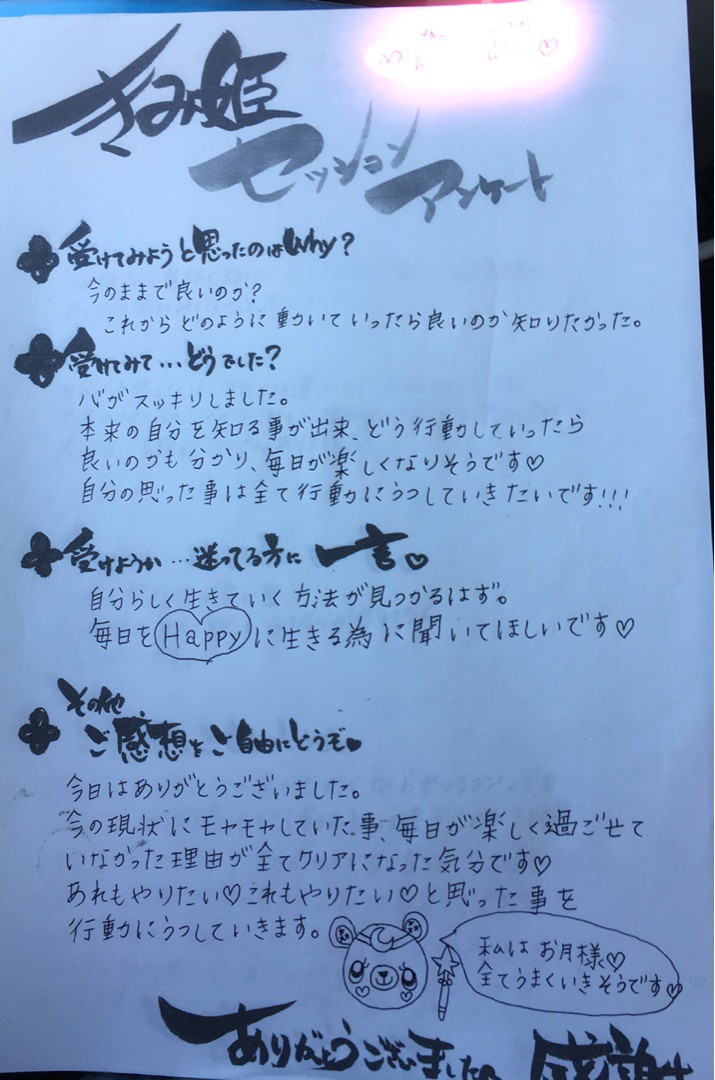 きみ姫
セッション
アンケート
受けてみようと思ったのはWhy?
今のままで良いのか?
これからどのように動いていったら良いのか知りたかった。
受けてみて…どうでした?
バがスッキリしました。
本来の自分を知る事が出来、どう行動していったら
良いのかも分かり、毎日が楽しくなりそうです♡
自分の思った事は全て行動にうつしていきたいです!!!
受けようか…迷ってる方に 一言♡
自分らしく生きていく方法が見つかるはず。
毎日をHappyに生きる為に聞いてほしいです♡
その他
ご感想をご自由にどうぞ♥
今日はありがとうございました。
今の現状にモヤモヤしていた事、毎日が楽しく過ごせて
いなかった理由が全てクリアになった気分です♡
あれもやりたい♡これもやりたい♡と思った事を
行動にうつしていきます。
私はお月様♡
全てうまくいきそうです♡
ありがとうございました
感謝